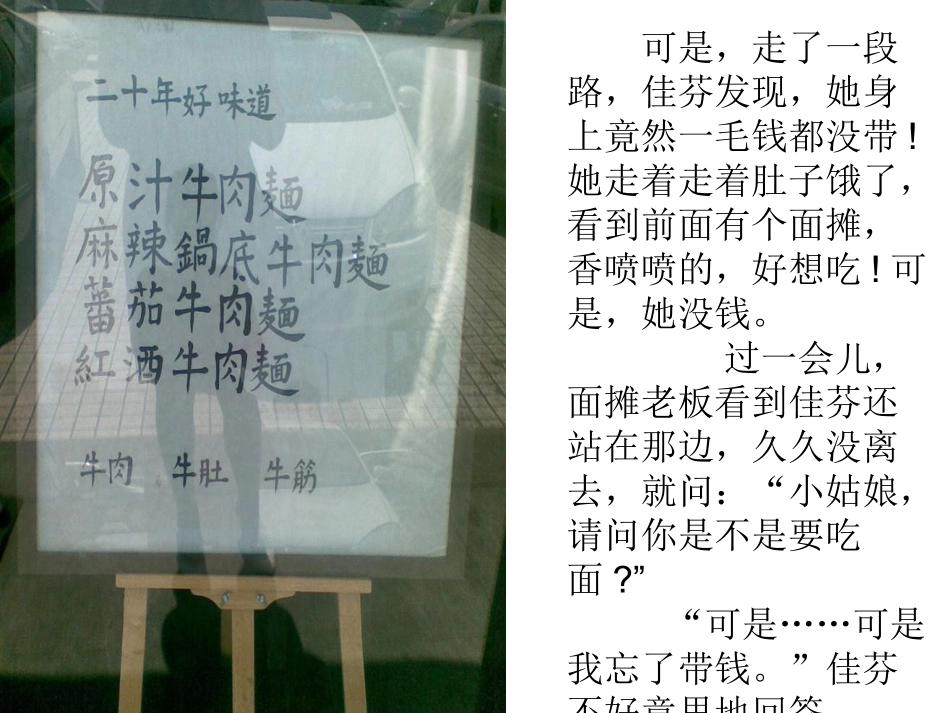 二十年好味道
原汁牛肉麵
麻辣鍋底牛肉麵
蕃茄牛肉麵
紅酒牛肉麵
牛肉 牛肚 牛筋
可是，走了一段
路，佳芬发现，她身
上竟然一毛钱都没带!
她走着走着肚子饿了，
看到前面有个面摊，
香喷喷的，好想吃!可
是，她没钱。
过一会儿，
面摊老板看到佳芬还
站在那边，久久没离
去，就问：“小姑娘，
请问你是不是要吃
面?”
“可是……可是
我忘了带钱。”佳芬
不好意思地回答